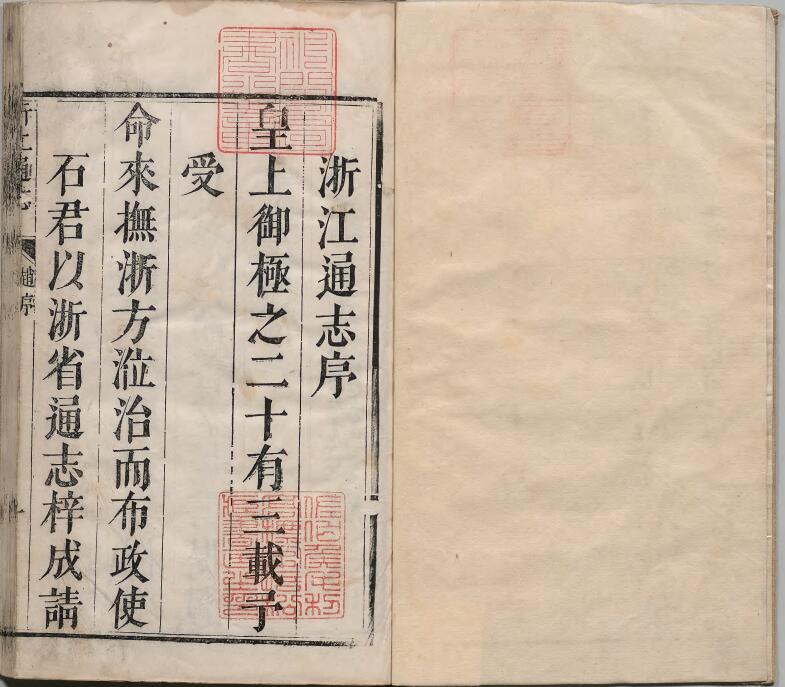 浙江通志序
皇上御極之二十有三載予
受
命來撫浙方涖治而布政使
石君以浙省通志梓成請
浙江通志
趙序